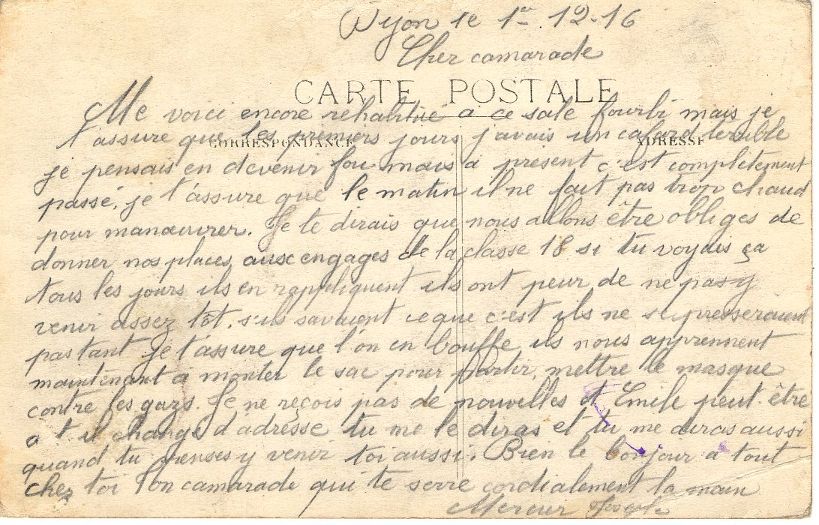 Dijon le 1er 12-16
Cher camarade
CARTE POSTALE
Me voici encore rehabitué a ce sale fourbi mais je
t'assure que les premiers jours j'avais un cafard terrible
CORRESPONDANCE ADRESSE
je pensais en devenir fou mais a présent c'est complètement
passé, je t'assure que le matin il ne fait pas trop chaud
pour manœuvrer. Je te dirais que nous allons être obliges de
donner nos places aux engages de la classe 18 si tu voyais ça
tous les jours ils en rappliquent ils ont peur de ne pas y
venir assez tôt, s'ils savaient ce que c'est ils ne se presseraient
pas tant je t'assure que l'on en bouffe ils nous apprennent
maintenant a monter le sac pour partir, mettre le masque
contre les gazs. Je ne reçois pas de nouvelles d'Emile peut être
a t il changé d'adresse tu me le diras et tu me diras aussi
quand tu penses y venir toi aussi. Bien le bonjour a tout
chez toi Ton camarade qui te serre cordialement la main
Mercier Joseph